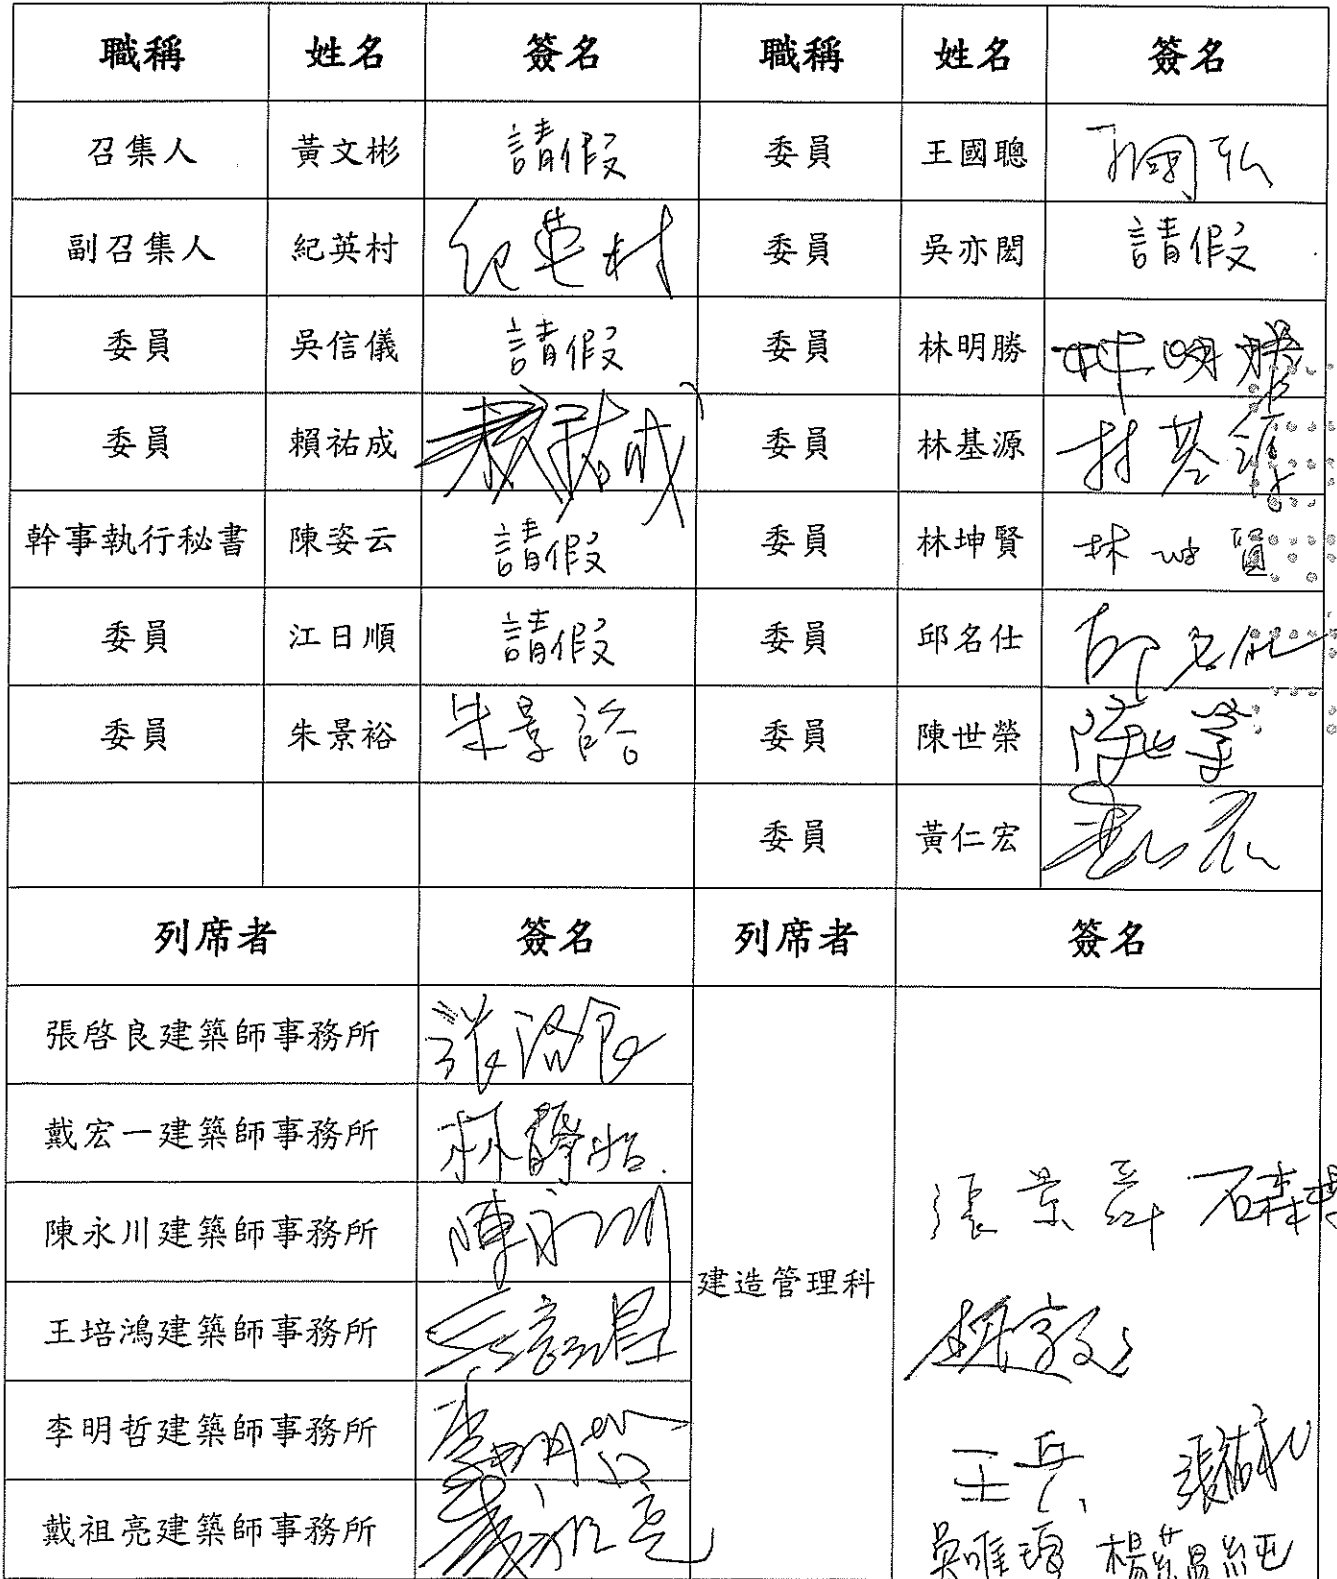 職稱 姓名 簽名 職稱 姓名 簽名
召集人 黃文彬 請假 委員 王國聰
副召集人 紀英村 紀英村 委員 吳亦閎 請假
委員 吳信儀 請假 委員 林明勝 林明勝
委員 賴祐成 賴祐成 委員 林基源 林基源
幹事執行秘書 陳姿云 請假 委員 林坤賢 林坤賢
委員 江日順 請假 委員 邱名仕 邱名仕
委員 朱景裕 朱景裕 委員 陳世榮 陳世榮
委員 黃仁宏 黃仁宏
列席者 簽名 列席者 簽名
張啓良建築師事務所 張啓良
戴宏一建築師事務所
陳永川建築師事務所 陳永川
王培鴻建築師事務所
建造管理科
李明哲建築師事務所 李明哲
戴祖亮建築師事務所 戴祖亮